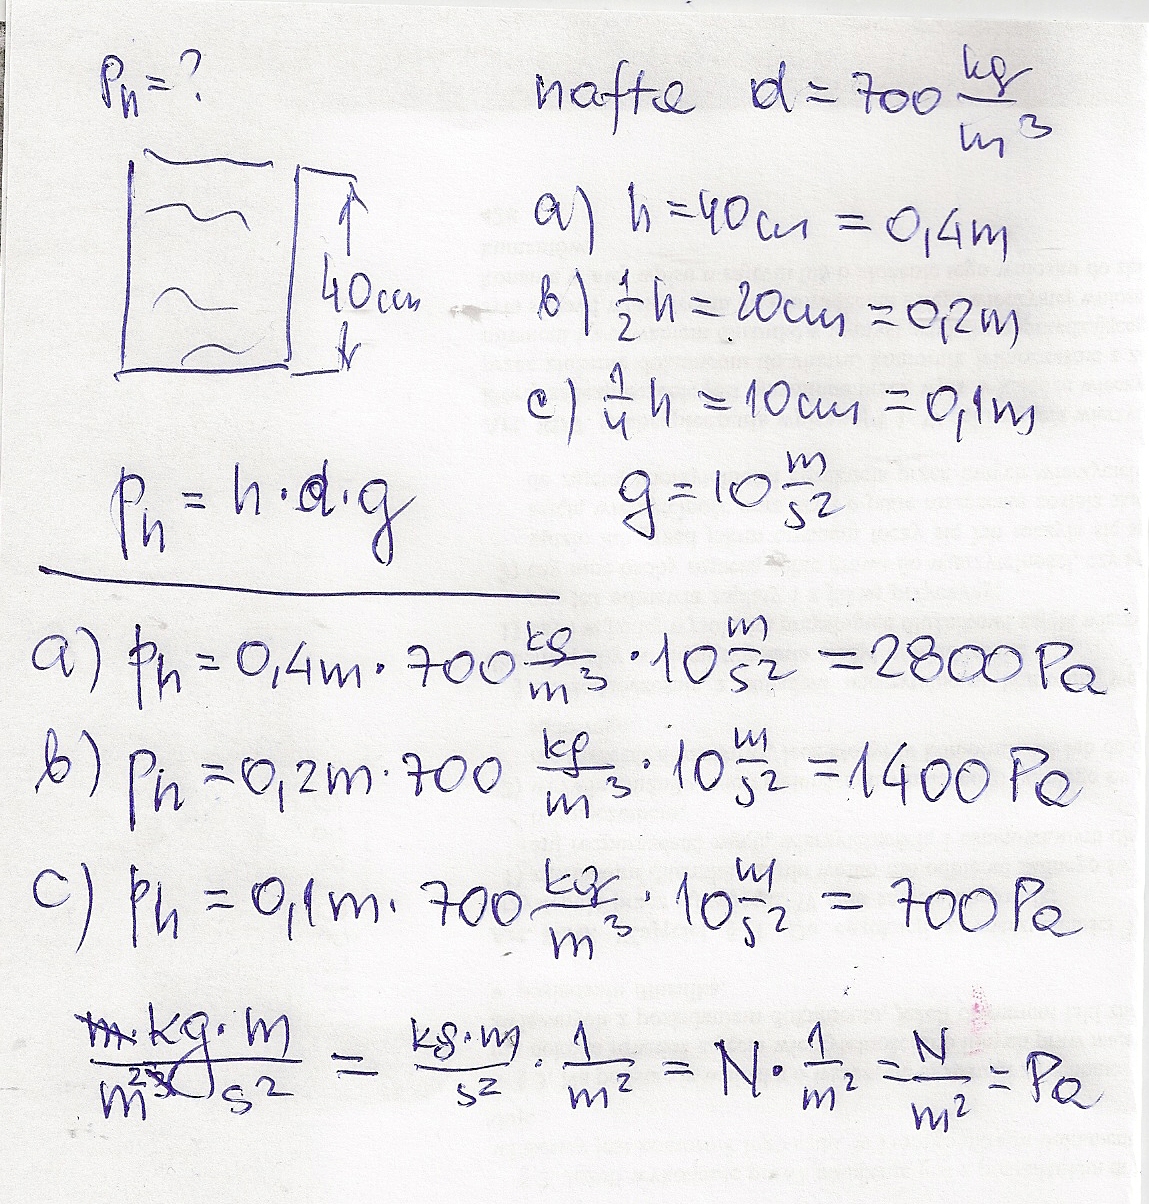 pₕ = ?
nafta d = 700 kg/m³
40cm
a) h = 40cm = 0,4m
b) 1/2 h = 20cm = 0,2m
c) 1/4 h = 10cm = 0,1m
pₕ = h · d · g
g = 10 m/s²
a) pₕ = 0,4m · 700 kg/m³ · 10 m/s² = 2800 Pa
b) pₕ = 0,2m · 700 kg/m³ · 10 m/s² = 1400 Pa
c) pₕ = 0,1m · 700 kg/m³ · 10 m/s² = 700 Pa
m · kg · m / m² s² = kg · m / s² · 1/m² = N · 1/m² = N/m² = Pa